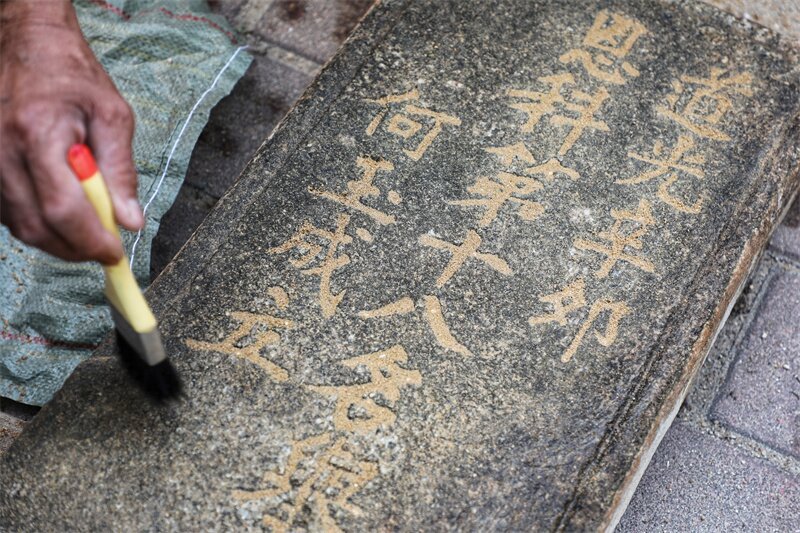 道光辛卯
恩科第十八名
何玉成立